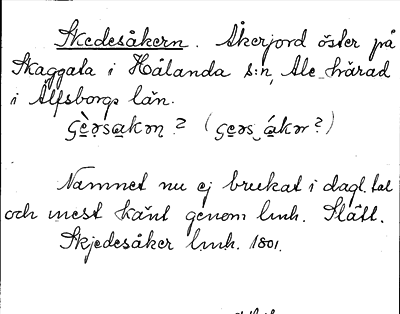 Skedesåkern. Åkerjord öster på
Skaggata i Hålanda s:n, Ale-härad
i Älfsborgs län.
çè̱ərsa̱kərn ? (çe̱əs_á̱kər ?)
Namnet nu ej brukat i dagl. tal
och mest känt genom lmh. Slätt.
Skjedesåker lmh. 1801.